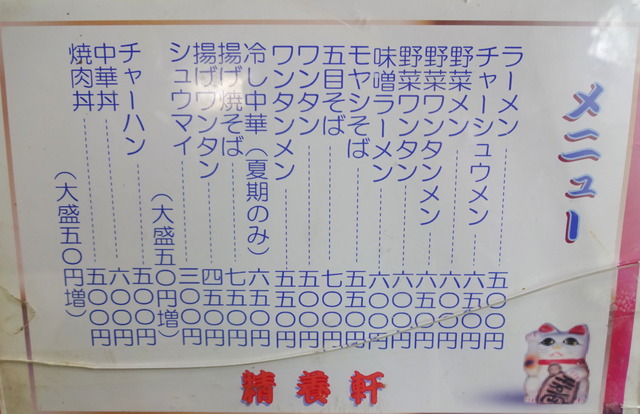 メニュー
ラーメン 五〇〇円
チャーシュウメン 六五〇円
野菜メン 六〇〇円
野菜ワンタンメン 六五〇円
野菜ワンタン 六〇〇円
味噌ラーメン 六〇〇円
モヤシそば 五五〇円
五目そば 七〇〇円
ワンタン 五〇〇円
ワンタンメン 五五〇円
冷し中華（夏期のみ） 六五〇円
揚げ焼そば 七五〇円
揚げワンタン 四五〇円
シュウマイ 三〇〇円
（大盛五〇円増）
チャーハン 五〇〇円
中華丼 六〇〇円
焼肉丼 五〇〇円
（大盛五〇円増）
精養軒